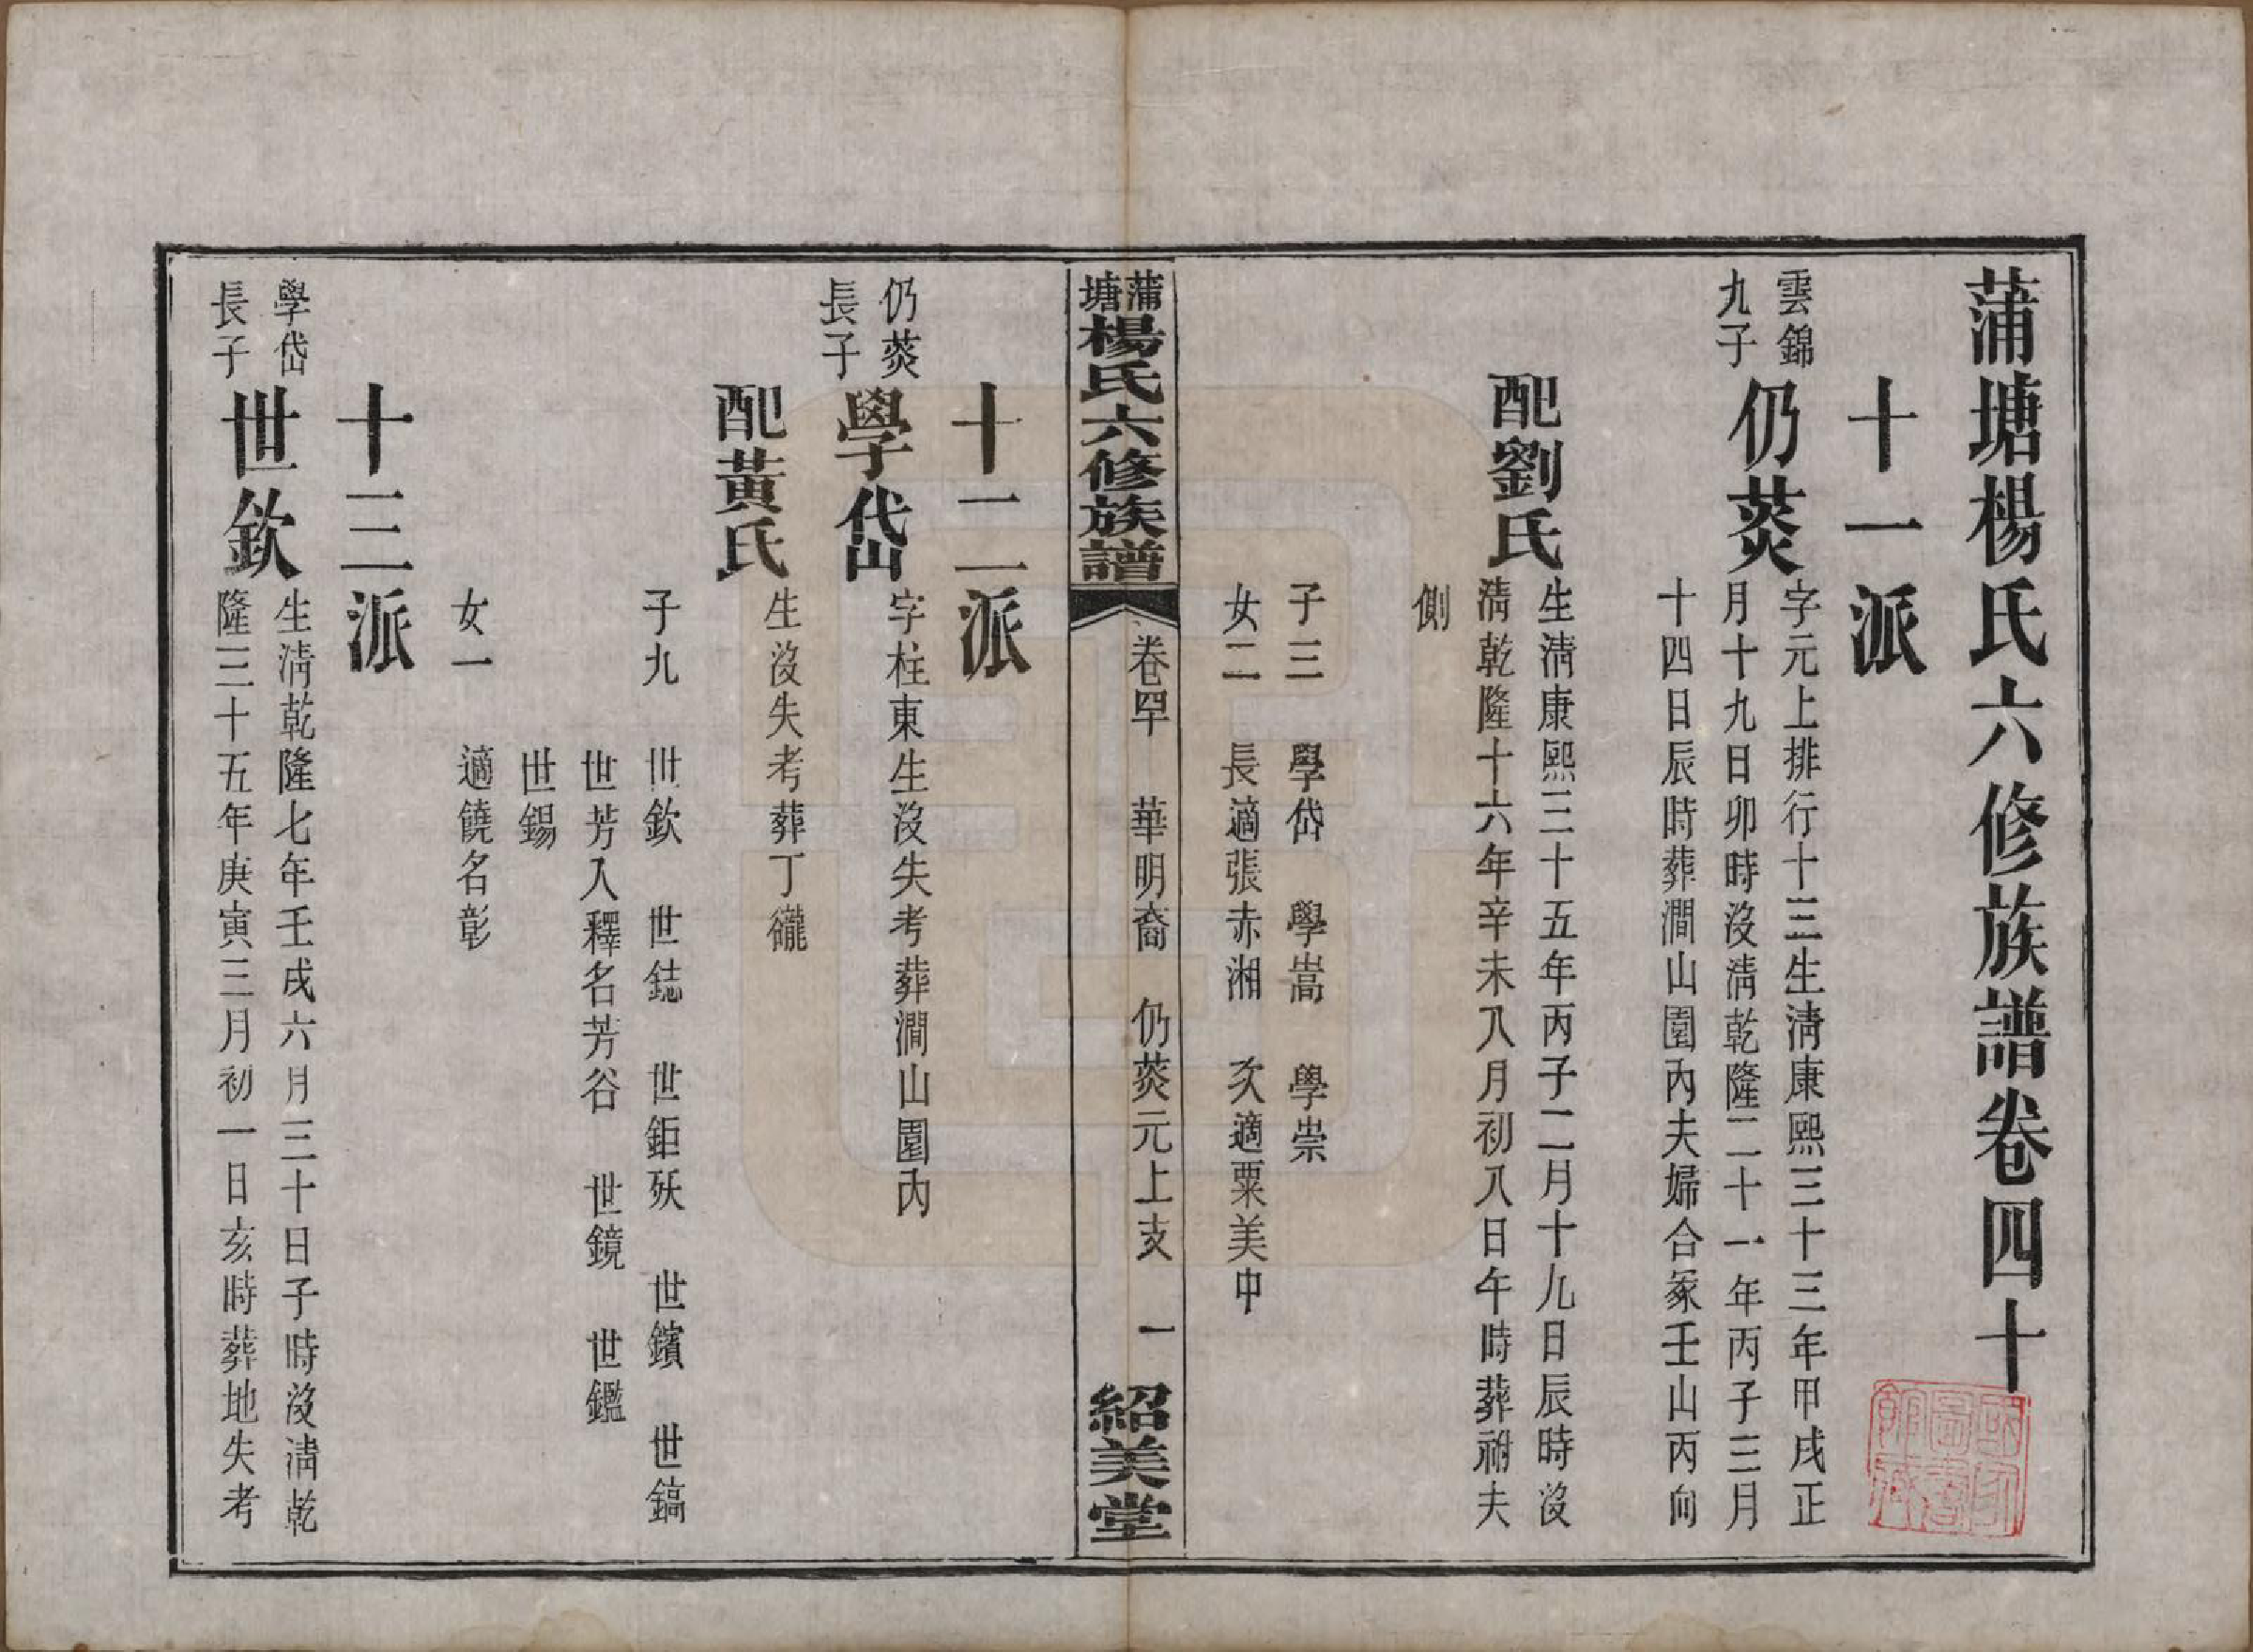 蒲塘楊氏六修族譜卷四十
十一派
雲錦
九子
仍葖
字元上排行十三生清康熙三十三年甲戌正
月十九日卯時沒清乾隆二十一年丙子三月
十四日辰時葬澗山園內夫婦合冢壬山丙向
配劉氏
生清康熙三十五年丙子二月十九日辰時沒
清乾隆十六年辛未八月初八日午時葬祔夫
側
子三　學岱　學嵩　學崇
女二　長適張赤湘　次適粟美中
蒲塘楊氏六修族譜　卷四十　華明裔　仍葖元上支　一　紹美堂
十二派
仍葖
長子
學岱
字柱東生沒失考葬澗山園內
配黃氏
生沒失考葬丁礲
子九　世欽　世鋕　世鉅殀　世鑌　世鎬
世芳入釋名芳谷　世鏡　世鑑
世錫
女一　適饒名彰
十三派
學岱
長子
世欽
生清乾隆七年壬戌六月三十日子時沒清乾
隆三十五年庚寅三月初一日亥時葬地失考